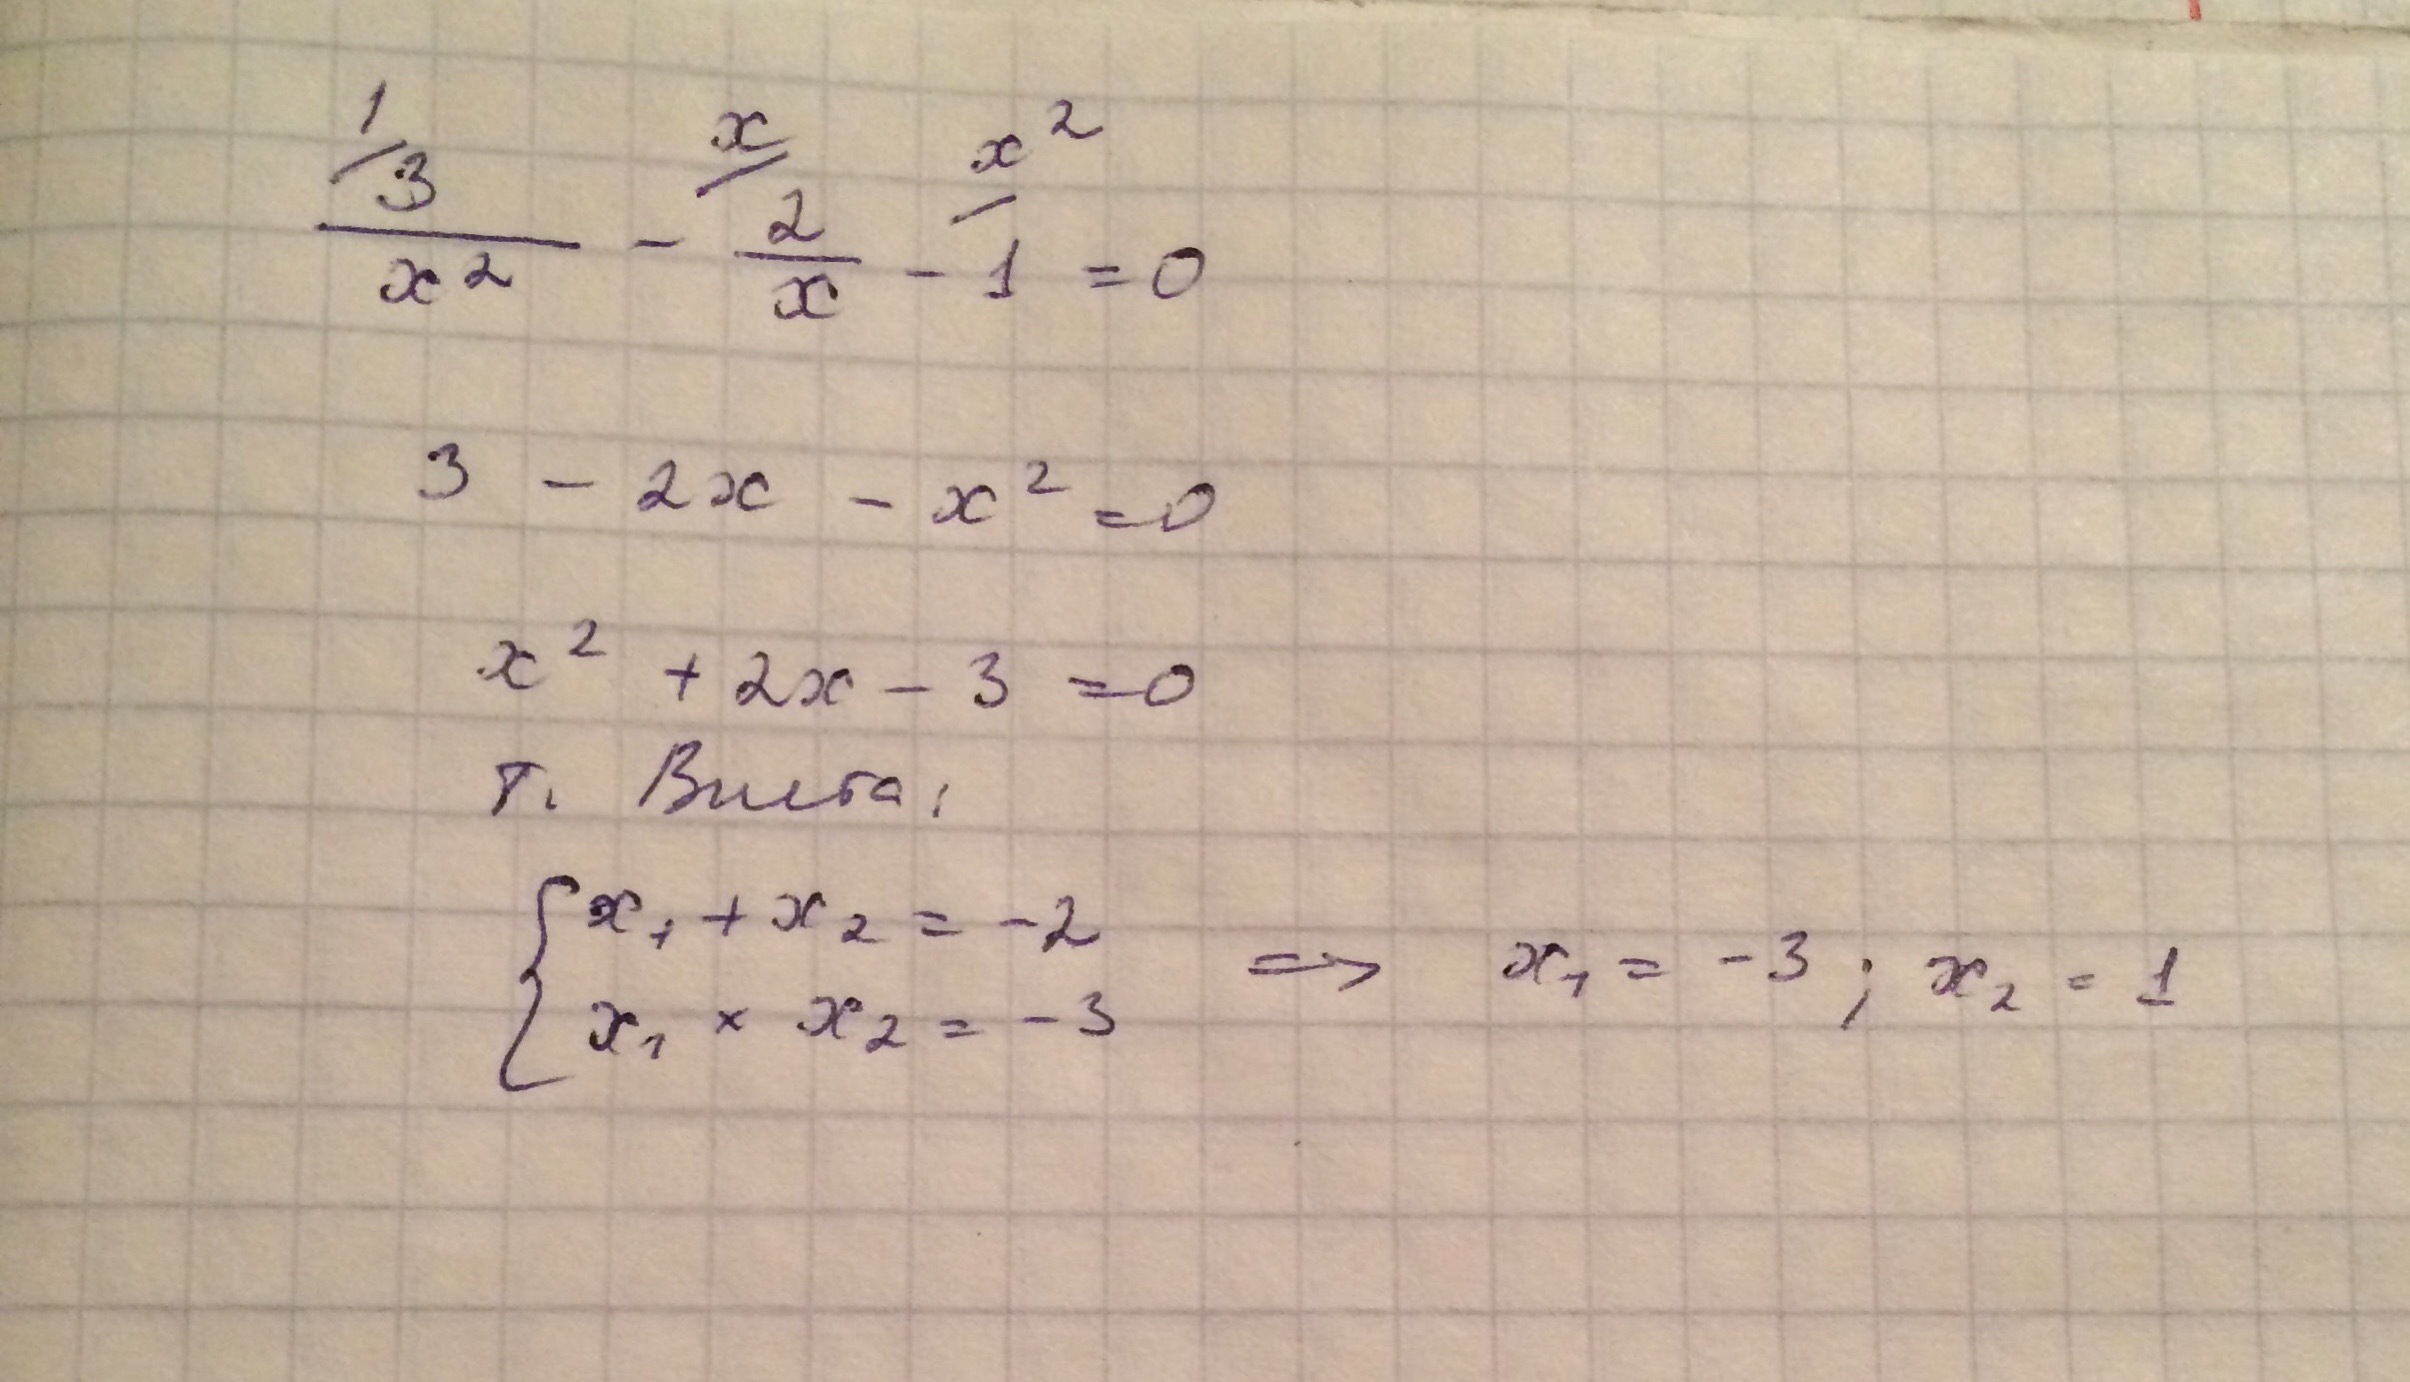 1/ x/ x²/
3/x² - 2/x - 1 = 0
3 - 2x - x² = 0
x² + 2x - 3 = 0
т. Виета:
{ x₁ + x₂ = -2
{ x₁ × x₂ = -3 => x₁ = -3 ; x₂ = 1